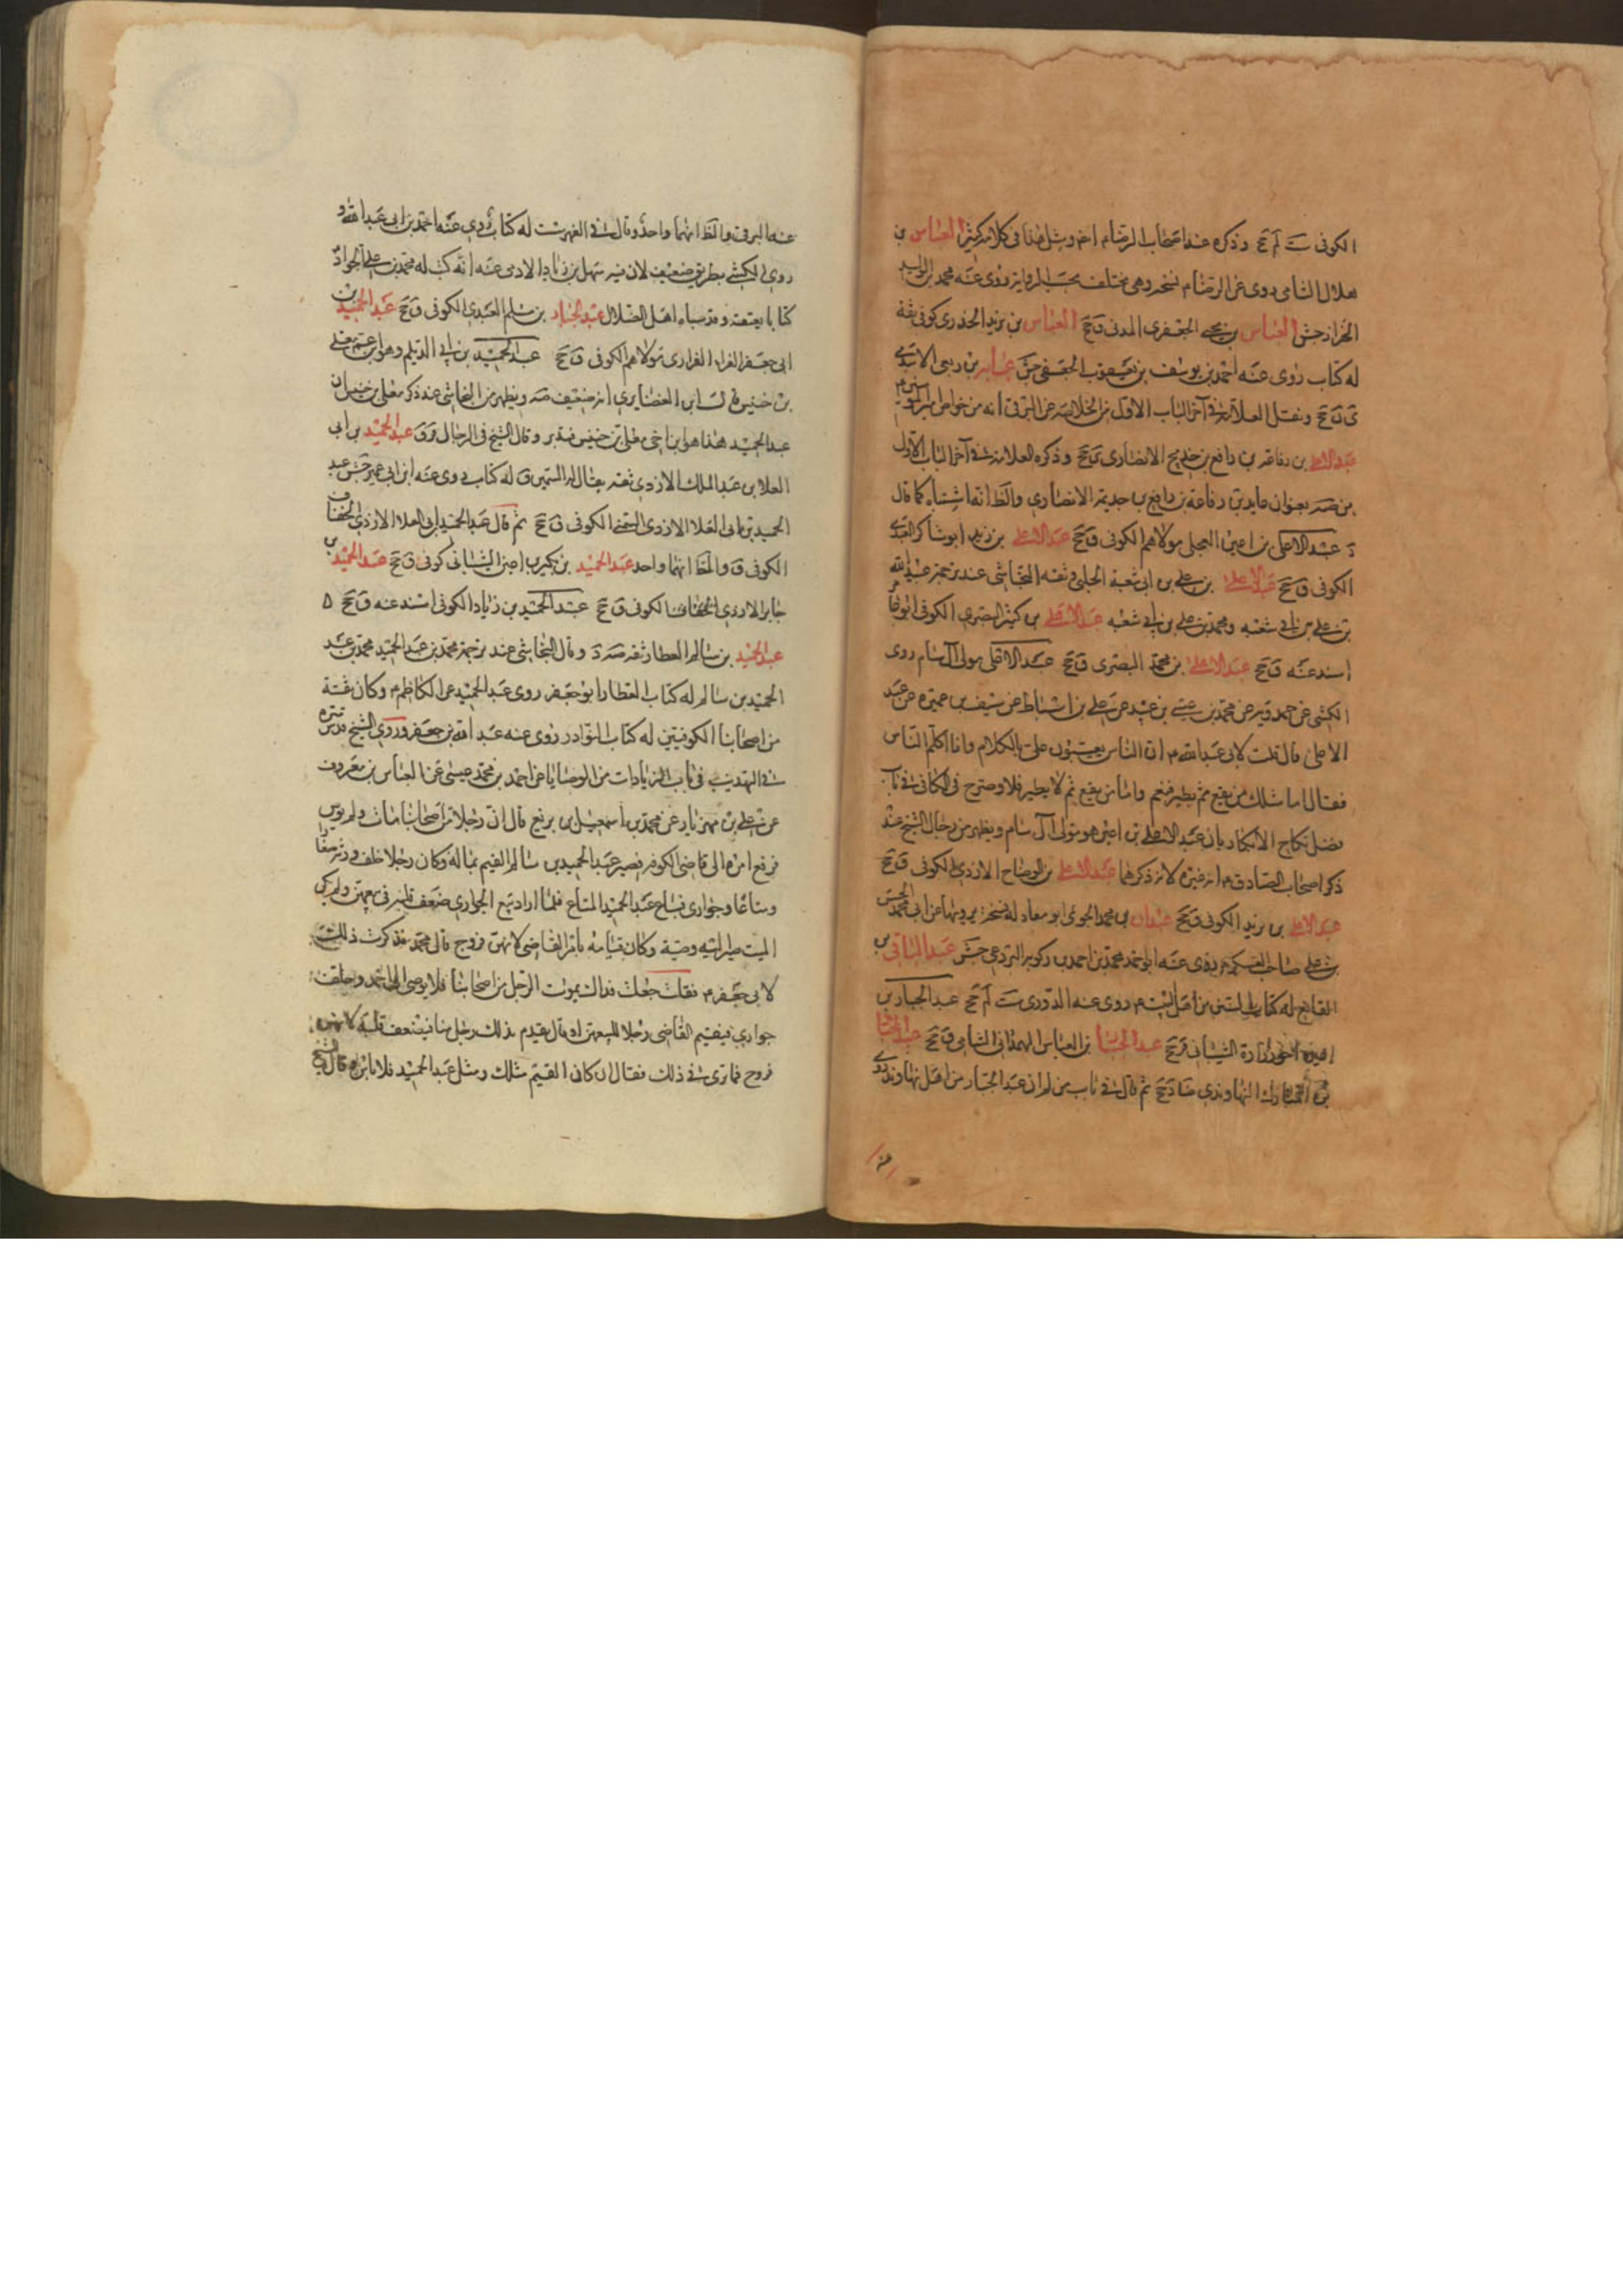 الكوفى ست لم جخ وذكره عند اصحاب الرضام ايضا ومثل هذا فى كلامه كثير العباس بن
هلال الشامى روى عن الرضام نسخه وهى مختلف بحسب الرواية روى عنه محمد بن الوليد
الخزاز جش العباس بن يحيى الجعفرى المدنى ق جخ العباس بن يزيد الخزرى كوفى ثقة
له كتاب روى عنه احمد بن يوسف بن يعقوب الجعفى جش عباية بن ربعى الاسدى
ى ن جخ ونقل العلامة فى آخر الباب الاول من الخلاصه عن البرقى انه من خواص امير المؤمنين م
عبد الاعلى بن رفاعه بن رافع بن خديج الانصارى جخ وذكره العلامة فى آخر الباب الاول
من صه بعنوان عايد بن رفاعة بن رافع بن جديمة الانصارى والظ انه اشتباه كما قال
د عبد الاعلى بن اعين العجلى مولاهم الكوفى ق جخ عبد الاعلى بن زيد ابو شاكر العبدى
الكوفى ق جخ عبد الاعلى بن على بن ابى شعبة الحلبى وثقه النجاشى عند ترجمة عبيد الله
بن على بن ابى شعبه ومحمد بن على بن ابى شعبه عبد الاعلى بن كثير البصرى الكوفى ابو عامر
اسند عنه ق جخ عبد الاعلى بن محمد البصرى ق جخ عبد الاعلى مولى آل سام روى
الكشى عن حمدويه عن محمد بن عيسى بن عبيد عن على بن اسباط عن سيف بن عميره عن عبد
الاعلى قال قلت لابى عبد الله م ان الناس يعيبون على بالكلام وانا اكلم الناس
فقال اما مثلك من يقع ثم يطير فنعم واما من يقع ثم لا يطير فلا وصرح فى الكافى فى باب
فضل نكاح الابكار بان عبد الاعلى بن اعين هو مولى آل سام ويظهر من رجال الشيخ عند
ذكر اصحاب الصادق م انه غيره لانه ذكرهما عبد الاعلى بن الوضاح الازدى الكوفى ق جخ
عبد الاعلى بن يزيد الكوفى ق جخ عبدان بن محمد الجوئى ابو معاد له نسخه يرويها عن ابى محمد الحسن
بن على صاحب العسكر م روى عنه ابو احمد محمد بن احمد بن زكويه البردعى جش عبد الباقى بن
القانع له كتاب السنن من اهل البيت م روى عنه الدورى ست لم جخ عبد الجبار بن
اعين اخو زرارة الشيبانى قر جخ عبد الجبار بن العباس الهمدانى الشامى ق جخ عبد الجبار
بن المبارك النهاوندى ضا د جخ ثم قال فى باب من لم ان عبد الجبار من اهل نهاوند روى
عنه
عنه البرقى والظ انهما واحد وقال فى الفهرست له كتاب روى عنه احمد بن ابى عبد الله و
روى الكشى بطريق ضعيف لان فيه سهل بن زياد الادمى عنه انه كتب له محمد بن على الجواد
كتابا بعتقه وقد سباه اهل الضلال عبد الجبار بن مسلم العبدى الكوفى ق جخ عبد الحميد بن
ابى جعفر الفراء الفزارى مولاهم الكوفى ق جخ عبد الحميد بن ابى الديلم وهو ابن عم معلى
بن خنيس ابن الغضايرى انه ضعيف صه ويظهر من النجاشى عند ذكر معلى بن خنيس ان
عبد الحميد هذا هو ابن اخى معلى بن خنيس فتدبر وقال الشيخ فى الرجال ق عبد الحميد بن ابى
العلا بن عبد الملك الازدى ثقه يقال له السمين ق له كتاب روى عنه ابن ابى عمير جش عبد
الحميد بن ابى العلا الازدى السمين الكوفى ق جخ ثم قال عبد الحميد ابى العلاء الازدى الخفاف
الكوفى ق والظ انهما واحد عبد الحميد بن بكير بن اعين الشيبانى كوفى ق جخ عبد الحميد بن
جابر الازدى الخفاف الكوفى ق جخ عبد الحميد بن زياد الكوفى اسند عنه ق جخ
عبد الحميد بن سالم العطار ثقه صه د وقال النجاشى عند ترجمة محمد بن عبد الحميد محمد بن عبد
الحميد بن سالم له كتاب العطار ابو جعفر روى عبد الحميد عن الكاظم م وكان ثقة
من اصحابنا الكوفيين له كتاب النوادر روى عنه عبد الله بن جعفر وروى الشيخ قدس سره
فى التهذيب فى باب الزيادات من الوصايا عن احمد بن محمد بن عيسى عن العباس بن معروف
عن على بن مهزيار عن محمد بن اسمعيل بن بزيع قال ان رجلا من اصحابنا مات ولم يوص
فرفع امره الى قاضى الكوفه فصير عبد الحميد بن سالم القيم بماله وكان رجلا خلف ورثة صغارا
ومتاعا وجوارى فباع عبد الحميد المتاع فلما اراد بيع الجوارى ضعف قلبه فى بيعهن ولم يكن
الميت صير اليه وصية وكان قيامه بامر القاضى لانهن فروج قال محمد فذكرت ذلك
لابى جعفر م فقلت جعلت فداك يموت الرجل من اصحابنا فلا يوصى الى احد وخلف
جوارى فيقيم القاضى رجلا لبيعهن او قال يقدم بذلك رجل منا فيضعف قلبه لانهن
فروج فما ترى فى ذلك فقال ان كان القيم مثلك ومثل عبد الحميد فلا باس قال الشيخ